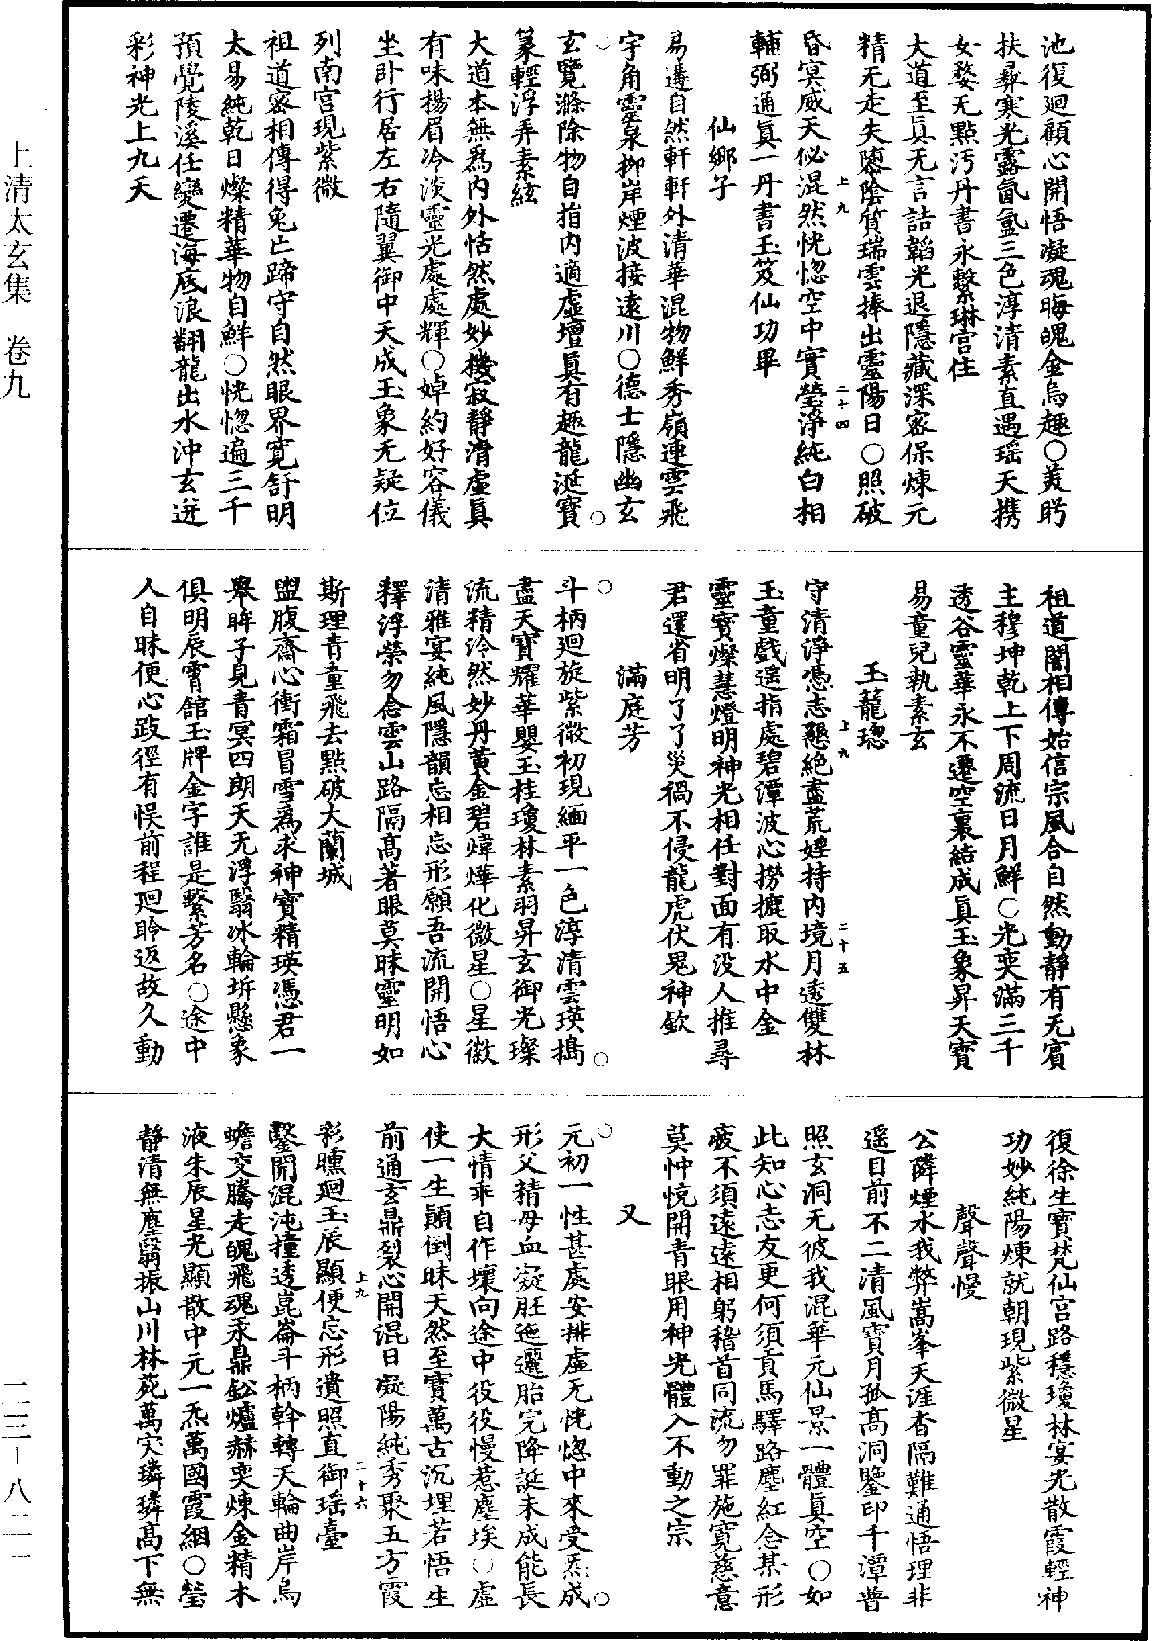 池復迴顧心開悟凝魂晦魄金烏趣○美盻
扶彛寒光露氤氳三色淳清素直遇瑶天携
女婺无點汚丹書永繫琳宫住
大道至真无言詰韜光退隱藏深密保煉元
精无走失隳陰質瑞雲捧出靈陽日○照破
昏冥威天必混然恍惚空中實瑩淨純白相
輔弼通真一丹書玉笈仙功畢
仙鄉子
易邊自然軒軒外清華混物鮮秀嶺連雲飛
宇角靈泉栁岸煙波接遠川○德士隱幽玄
玄覽滌除物自指内適虛壇真有趣龍涎寶
篆輕浮弄素絃
大道本無為内外恬然處妙機寂静湑虛真
有味揚眉冷淡靈光處處輝○婥約好容儀
坐卧行居左右隨翼御中天成玉象无疑位
列南宫現紫微
祖道密相傳得兎亡蹄守自然眼界寛舒明
太易純乾日燦精華物自鮮○恍惚遍三千
預覺陵溪任變遷海底浪翻龍出水沖玄迸
彩神光上九天
祖道闇相傳始信宗風合自然動静有无賓
主穆坤乾上下周流日月鮮○光奕滿三千
透谷靈華永不遷空裏結成真玉象昇天寶
易童兒執素玄
玉蘢璁
守清淨憑志懇絶盡荒婬持内境月透雙林
玉童戲遥指處碧潭波心撈摭取水中金
靈寶燦慧燈明神光相任對面有没人推尋
君還省明了了災禍不侵龍虎伏鬼神欽
滿庭芳
斗柄廻旋紫微初現緬平一色淳清雲瑛搗
盡天寶耀華嬰玉桂瓊林素羽昇玄御光璨
流精泠然妙丹黄金碧煒燁化微星○星徽
清雅宴純風隱韻忘相忘形願吾流開悟心
釋浮榮勿念雲山路隔髙著眼莫昧靈明如
斯理青童飛去點破大蘭城
盥腹齋心衝霜冒雪為求神寶精瑛憑君一
舉眸子見青冥四朗天无浮翳冰輪圻懸象
俱明辰霄舘玉牌金字誰是繫芳名○途中
人自昧便心跂徑有悮前程廻聆返故久動
復徐生寶梵仙宫路穩瓊林宴光散霞輕神
功妙純陽煉就朝現紫微星
聲聲慢
公隣煙水我弊嵩峯天涯杳隔難通悟理非
遥目前不二清風寶月孤髙洞鑒印千潭普
照玄洞无彼我混華元仙景一體真空○如
此知心志友更何須貢馬驛路塵紅念某形
疲不須遠遠相躬稽首同流勿罪施寛慈意
莫忡怳開青眼用神光體入不動之宗
又
元初一性甚處安排虛无恍惚中來受炁成
形父精母血凝胚迤邐胎完降誕未成能長
大情乖自作壞向途中役役慢惹塵埃○虛
使一生顛倒昧天然至寶萬古沉埋若悟生
前通玄鼎裂心開混日凝陽純秀聚五方霞
彩曛廻玉辰顯便忘形遺照直御瑶臺
鑿開混沌撞透崑崙斗柄幹轉天輪曲岸烏
蟾交騰走魄飛魂汞鼎鈆爐赫奕煉金精木
液朱辰星光顯散中元一炁萬國霞絪○瑩
静清無塵翳振山川林苑萬宊璘璘髙下無
上清太玄集　卷九
二三－八二一